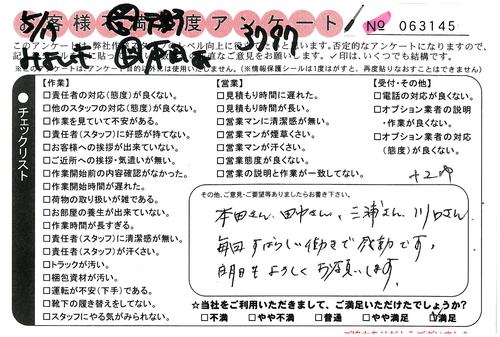 お客様満足度アンケート
No 063145
5/17
3797
このアンケートは、弊社作業スタッフのレベル向上に役立てたいと思います。否定的なアンケートになりますので、
直なご意見をお願いします。✓印は、いくつでも結構です。
※このアンケートは、アンケート目的以外は使用いたしません。(※情報保護シールは1度はがすと、再度貼りなおすことはできません)
チェックリスト
【作業】
□責任者の対応(態度)が良くない。
□他のスタッフの対応(態度)が良くない。
□作業を見ていて不安がある。
□責任者(スタッフ)に好感が持てない。
□お客様への挨拶が出来ていない。
□ご近所への挨拶・気遣いが無い。
□作業開始前の内容確認がなかった。
□作業開始時間が遅れた。
□荷物の取り扱いが雑である。
□お部屋の養生が出来ていない。
□作業時間が長すぎる。
□責任者(スタッフ)に清潔感が無い。
□責任者(スタッフ)が汗くさい。
□トラックが汚い。
□梱包資材が汚い。
□運転が不安(下手)である。
□靴下の履き替えをしてない。
□スタッフにやる気がみられない。
【営業】
□見積もり時間に遅れた。
□見積もり時間が長い。
□営業マンに清潔感が無い。
□営業マンが煙草くさい。
□営業マンが汗くさい。
□営業態度が良くない。
□営業の説明と作業が一致してない。
【受付・その他】
□電話の対応が良くない。
□オプション業者の説明
・作業が良くない。
□オプション業者の対応
(態度)が良くない。
その他、ご意見・ご要望等ありましたらお書き下さい。
本田さん、田中さん、三浦さん、川口さん
毎回すばらしい働きで感動です。
明日もよろしくお願いします。
☆当社をご利用いただきまして、ご満足いただけたでしょうか?
□不満 □やや不満 □普通 □やや満足 ☑満足